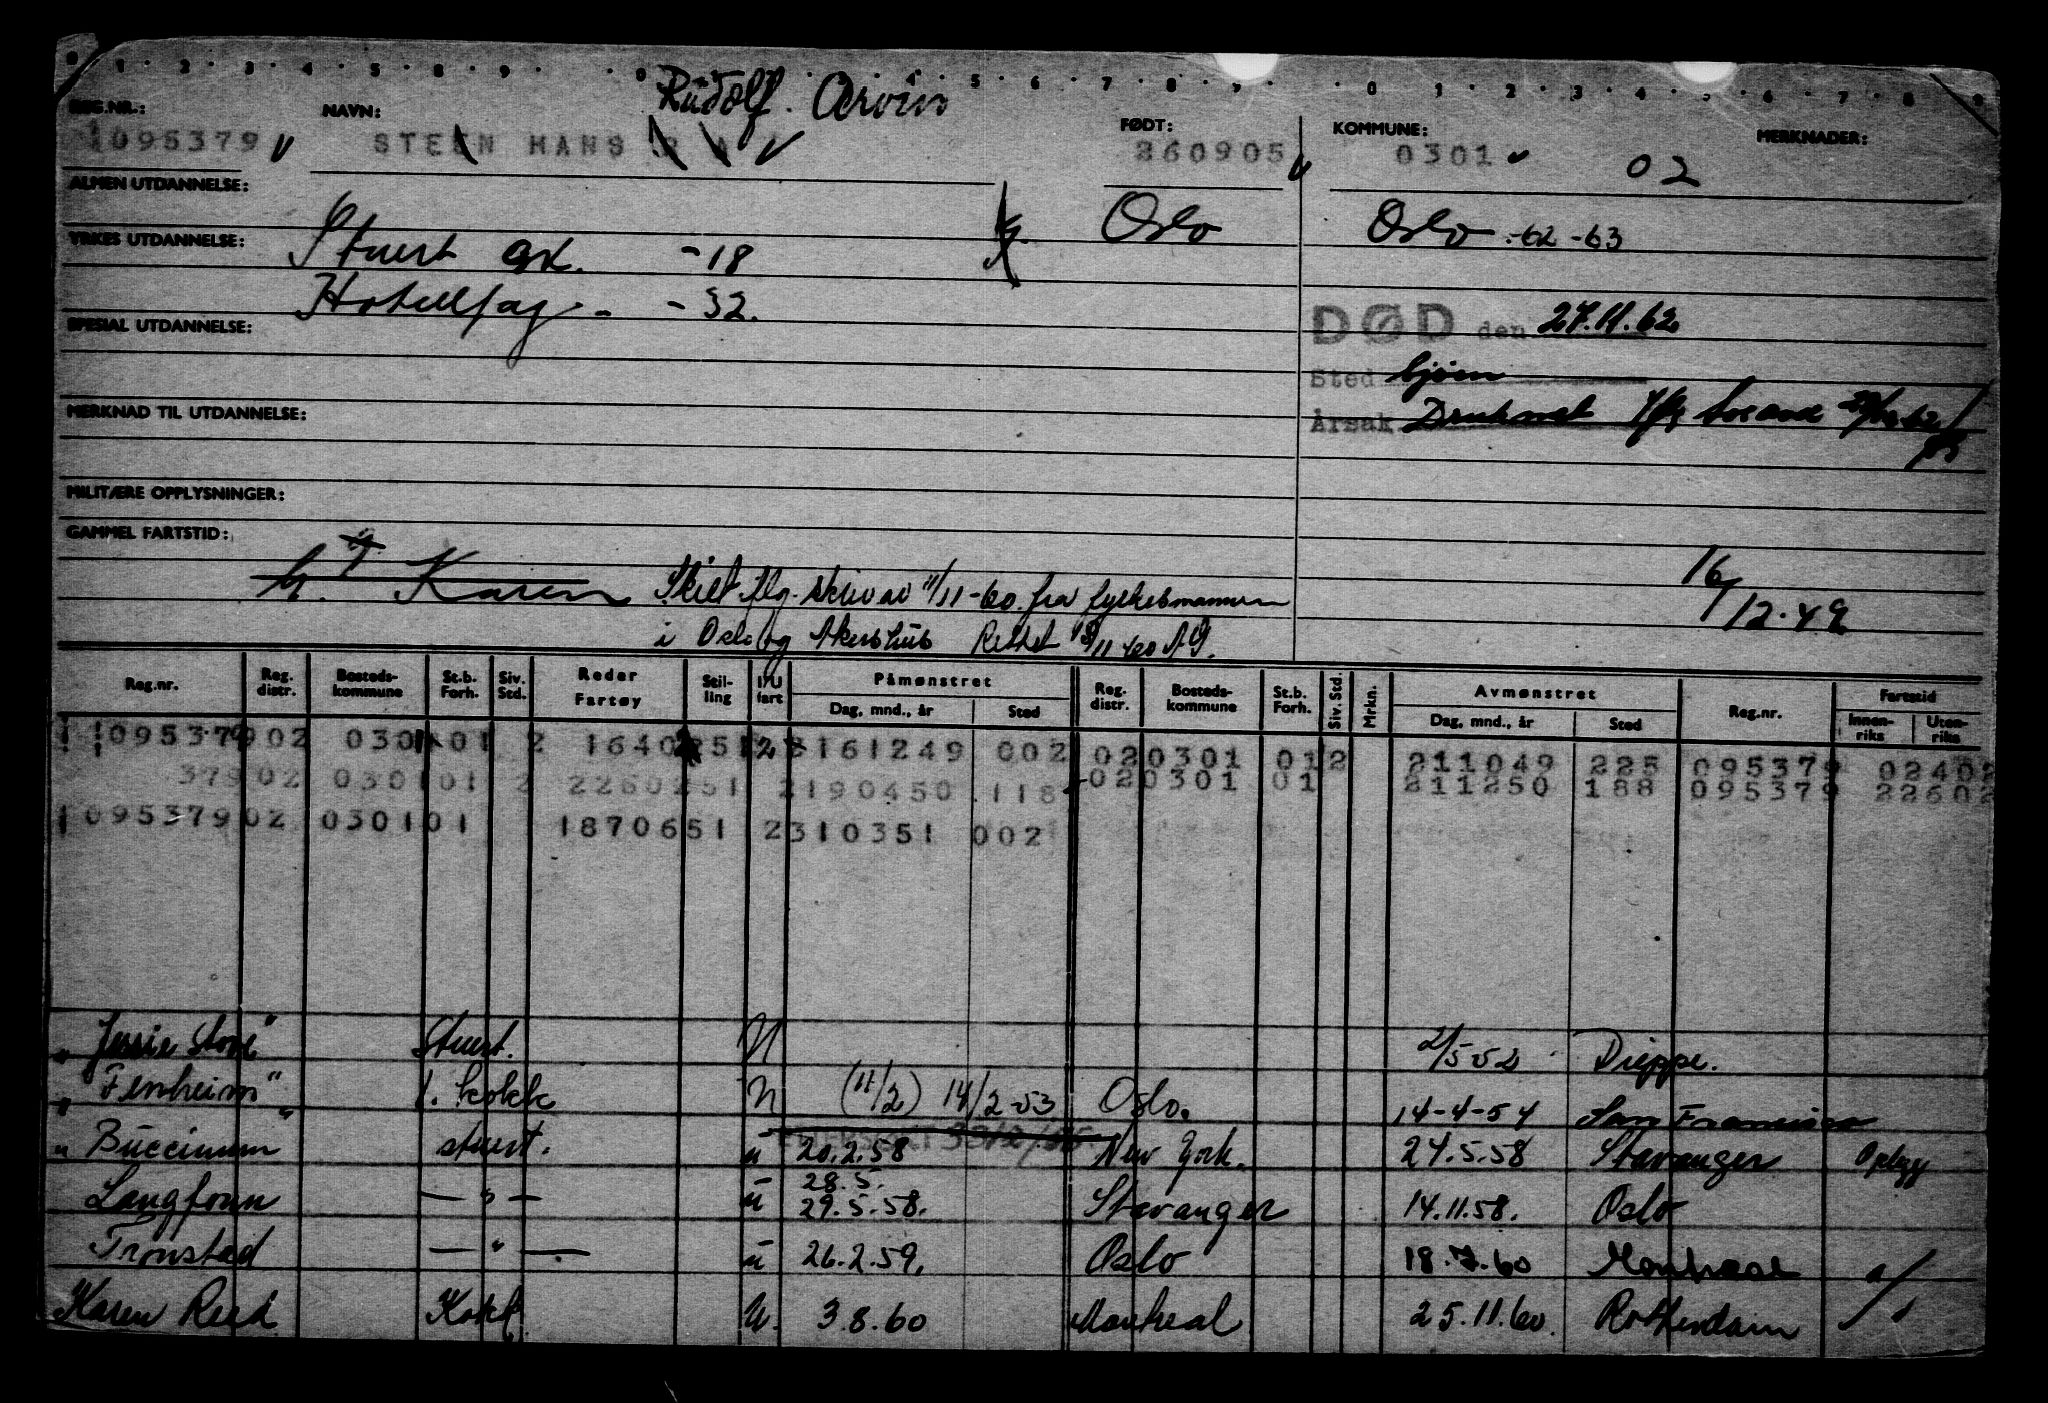 Rudolf. Arvin
REG.NR.: NAVN: FØDT: KOMMUNE: MERKNADER:
1095379 STEEN HANS R A 260905 0301 02
ALMEN UTDANNELSE:
Oslo Oslo -62 -63
YRKES UTDANNELSE: Stuert ex. -18
Hotellfag - -32.
SPESIAL UTDANNELSE:
DØD den 27.11.62
Sted
MERKNAD TIL UTDANNELSE:
Årsak Druknet
MILITÆRE OPPLYSNINGER:
GAMMEL FARTSTID:
Karen Skilt flg. skriv av 11/11-60 fra fylkesmannen 16/12.49
i Oslo og Akershus Rettet 18/11-60
Reg.nr. Reg. distr. Bosteds-kommune St.b. Forh. Siv. Std. Reder Fartøy Stil-ling I/U fart Påmønstret Dag, mnd., år Sted Reg. distr. Bosteds-kommune St.b. Forh. Siv. Std. Mrkn. Avmønstret Dag, mnd., år Sted Reg.nr. Fartstid Innen-riks Uten-riks
1095379 02 0301 01 2 1640 251 2 161249 002 02 0301 01 2 211049 225 095379 02402
379 02 0301 01 2 2260 251 2 190450 118 02 0301 01 211250 188 095379 22602
1095379 02 0301 01 18706 51 2 310351 002
"Jessie Stove" Stuert. U 2/5-52 Dieppe.
"Fernheim" 1. kokk U (11/2) 14/2-53 Oslo. 14-4-54 San Francisco
"Buccinum" stuert. u 20.2.58 New York. 24.5.58 Stavanger Opplegg
Langfonn — " — u 28.5. 29.5.58. Stavanger 14.11.58. Oslo
Tronstad — " — u 26.2.59. Oslo 18.7.60 Montreal
Karen Reed Kokk U. 3.8.60 Montreal 25.11.60. Rotterdam